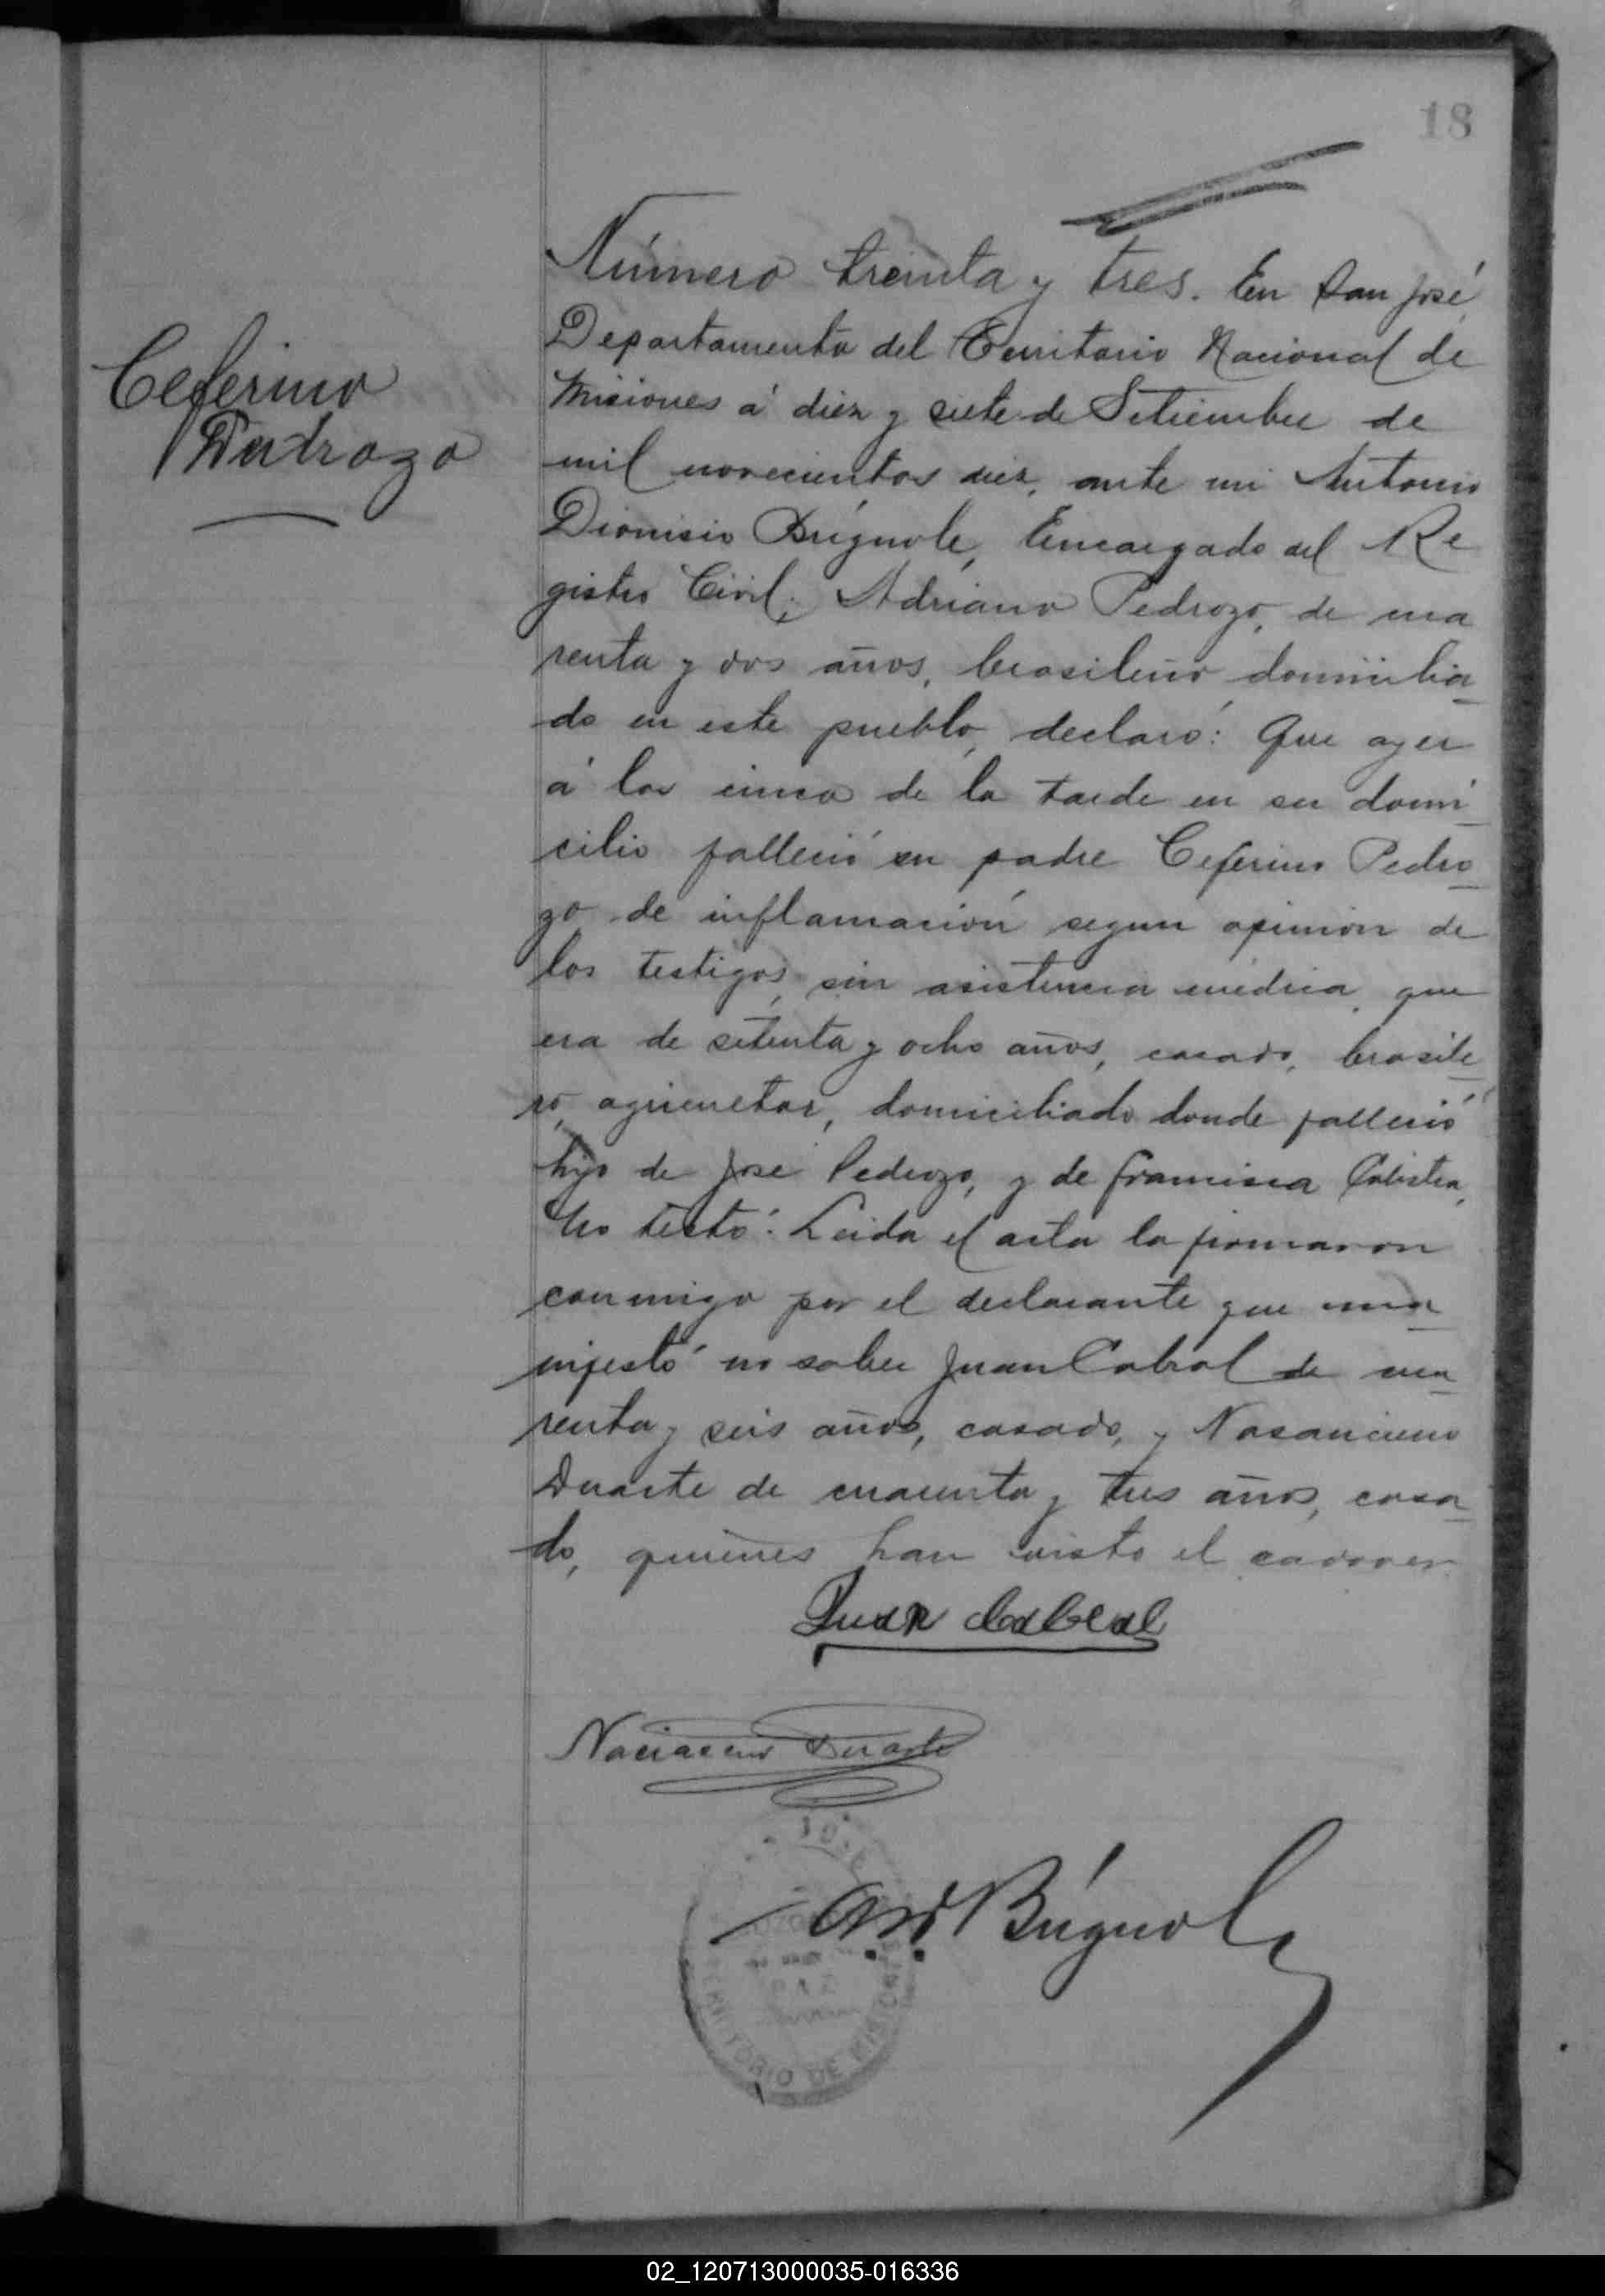 18
Número treinta y tres. En San José,
Departamento del Territorio Nacional de
Misiones á diez y siete de Setiembre de
mil novecientos diez, ante mi Antonio
Dionisio Brignole, Encargado del Re
gistro Civil, Adriano Pedrozo, de cua
renta y dos años, brasilero domicilia
do en este pueblo, declaró: Que ayer
á las cinco de la tarde en su domi
cilio falleció su padre Ceferino Pedro
zo de inflamación segun opinion de
los testigos, sin asistencia médica, que
era de setenta y ocho años, casado, brasile
ro, agricultor, domiciliado donde falleció
hijo de José Pedrozo, y de Francisca
No testó: Leida el acta la firmaron
conmigo por el declarante que ma
nifestó no saber Juan Cabral de cua
renta y seis años, casado, y Nasanceno
Duarte de cuarenta y tres años, casa
do, quienes han visto el cadaver
Ceferino
Pedrozo
Juan Cabral
Duarte
Brignole
TERRITORIO DE MISIONES
02_120713000035-016336